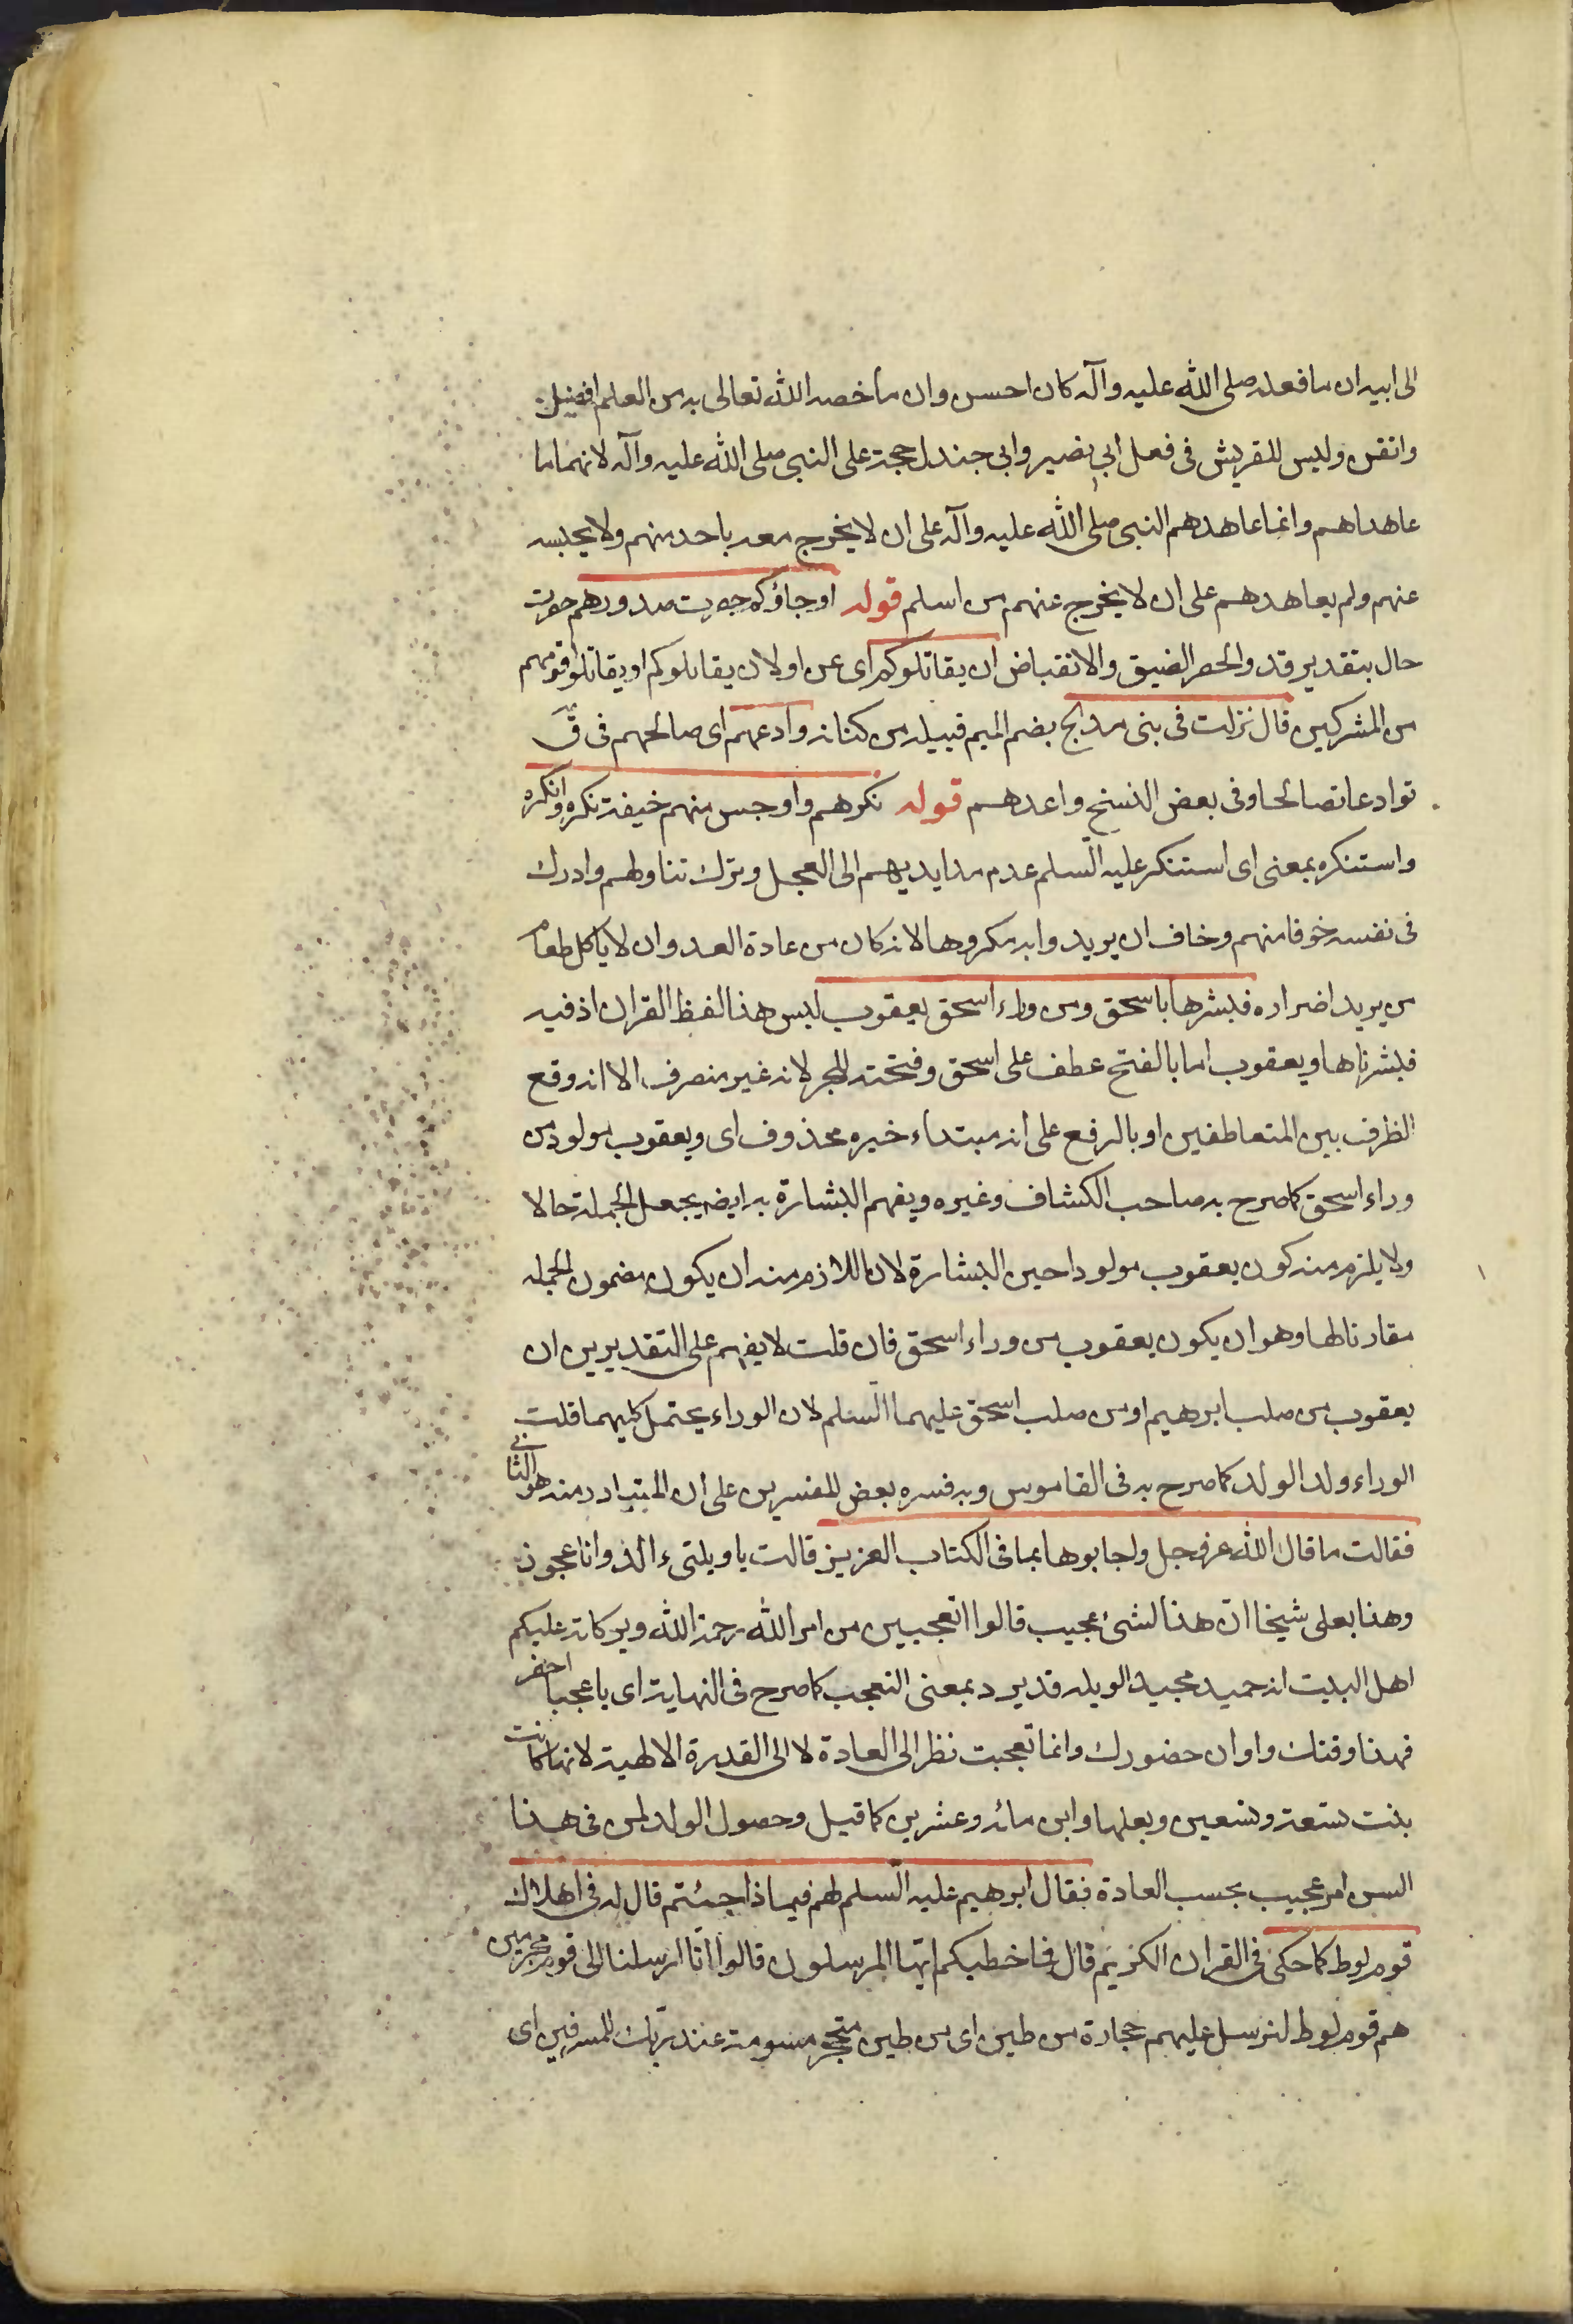 الى ابيه ان ما فعله صلى الله عليه وآله كان احسن وان ما خصه الله تعالى به من العلم افضل
واتقن وليس للقريش فى فعل ابى بصير وابى جندل حجة على النبى صلى الله عليه وآله لانهما ما
عاهداهم وانما عاهدهم النبى صلى الله عليه وآله على ان لا يخرج معه باحد منهم ولا يحبسه
عنهم ولم يعاهدهم على ان لا يخرج عنهم من اسلم قوله اوجاؤكم حصرت صدورهم حصرت
حال بتقدير قد والحصر الضيق والانقباض ان يقاتلوكم اى عن اولان يقاتلوكم او يقاتلوا قومهم
من المشركين قال نزلت فى بنى مدلج بضم الميم قبيله من كنانه وادعهم اى صالحهم فى ق
توادعا تصالحا وفى بعض النسخ واعدهم قوله نكرهم واوجس منهم خيفة نكره وانكره
واستنكره بمعنى اى استنكر عليه السلم عدم مد ايديهم الى العجل وترك تناولهم وادرك
فى نفسه خوفا منهم وخاف ان يريدوا به مكروها لانه كان من عادة العدو ان لا ياكل طعام
من يريد اضراره فبشرها باسحق ومن وراء اسحق يعقوب ليس هذا لفظ القران اذ فيه
فبشرناها ويعقوب اما بالفتح عطف على اسحق وفتحته للجر لانه غير منصرف الا انه وقع
الظرف بين المتعاطفين او بالرفع على انه مبتداء خبره محذوف اى ويعقوب مولود من
وراء اسحق كما صرح به صاحب الكشاف وغيره ويفهم البشارة به ايضا بجعل الجملة حالا
ولا يلزم منه كون يعقوب مولودا حين البشارة لان اللازم منه ان يكون مضمون الجمله
مقارنا لها وهو ان يكون يعقوب من وراء اسحق فان قلت لا يفهم على التقديرين ان
يعقوب من صلب ابرهيم او من صلب اسحق عليهما السلم لان الوراء يحتمل كليهما قلت
الوراء ولد الولد كما صرح به فى القاموس وبه فسره بعض المفسرين على ان المتبادر منه هو الثانى
فقالت ما قال الله عز وجل واجابوها بما فى الكتاب العزيز قالت يا ويلتى ءالد وانا عجوز
وهذا بعلى شيخا ان هذا لشئ عجيب قالوا اتعجبين من امر الله رحمة الله وبركاته عليكم
اهل البيت انه حميد مجيد الويله قد يرد بمعنى التعجب كما صرح فى النهاية اى يا عجبا احضر
فهذا وقتك واوان حضورك وانما تعجبت نظر الى العادة لا الى القدرة الالهية لانها كانت
بنت تسعة وتسعين وبعلها وابن مائه وعشرين كما قيل وحصول الولد لمن فى هذا
السن امر عجيب بحسب العادة فقال ابرهيم عليه السلم لهم فيما ذا جئتم قال له فى اهلاك
قوم لوط كما حكى فى القران الكريم قال فما خطبكم ايها المرسلون قالوا انا ارسلنا الى قوم مجرمين
هم قوم لوط لنرسل عليهم حجارة من طين اى من طين متحجر مسومة عند ربك للمسرفين اى